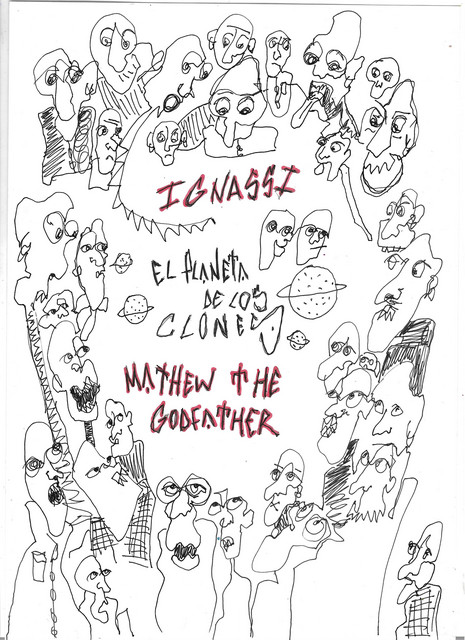 IGNASSI
EL PLANETA
DE LOS
CLONES
MATHEW THE
GODFATHER